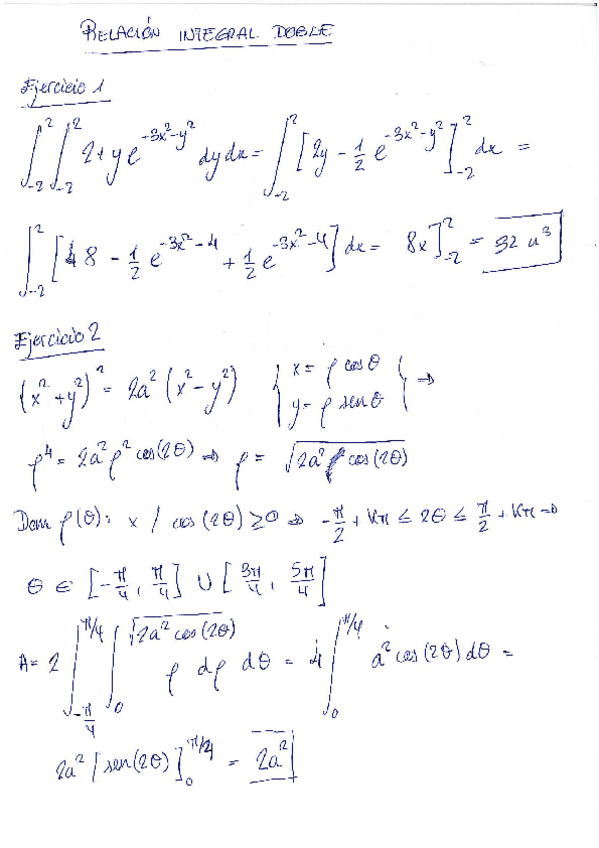 RELACIÓN INTEGRAL DOBLE
Ejercicio 1
∫_{-2}^{2} ∫_{-2}^{2} 2+y e^{-3x²-y²} dy dx = ∫_{-2}^{2} [2y - 1/2 e^{-3x²-y²}]_{-2}^{2} dx =
∫_{-2}^{2} [8 - 1/2 e^{-3x²-4} + 1/2 e^{-3x²-4}] dx = 8x]_{-2}^{2} = 32 u³
Ejercicio 2
(x²+y²)² = 2a² (x²-y²) { x = ρ cos θ
y = ρ sen θ } ⇒
ρ⁴ = 2a² ρ² cos(2θ) ⇒ ρ = √(2a² cos(2θ))
Dom ρ(θ): x / cos(2θ) ≥ 0 ⇒ -π/2 + Kπ ≤ 2θ ≤ π/2 + Kπ ⇒
θ ∈ [-π/4, π/4] ∪ [3π/4, 5π/4]
A = 2 ∫_{-π/4}^{π/4} ∫_{0}^{√(2a² cos(2θ))} ρ dρ dθ = 4 ∫_{0}^{π/4} a² cos(2θ) dθ =
2a² [sen(2θ)]_{0}^{π/4} = 2a²